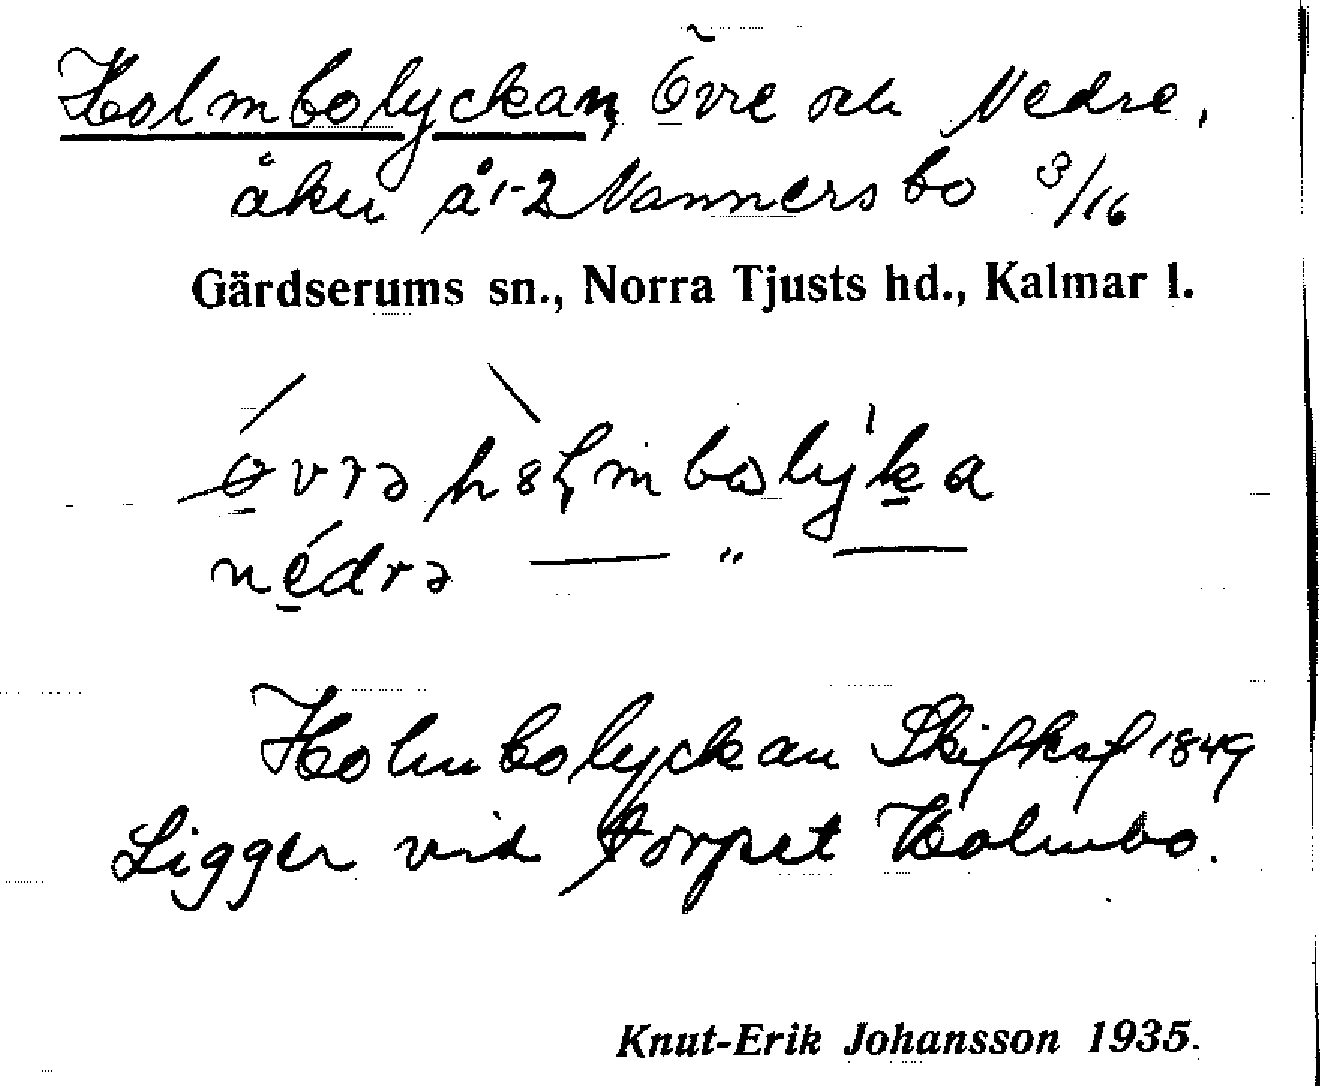 Holmbolyckan, Övre och Nedre,
åker å 1-2 Vannersbo 3/16
Gärdserums sn., Norra Tjusts hd., Kalmar l.
øvrə hålmbolyka
nédrə — " —
Holmbolyckan Skifksf 1849
Ligger vid torpet Holmbo.
Knut-Erik Johansson 1935.